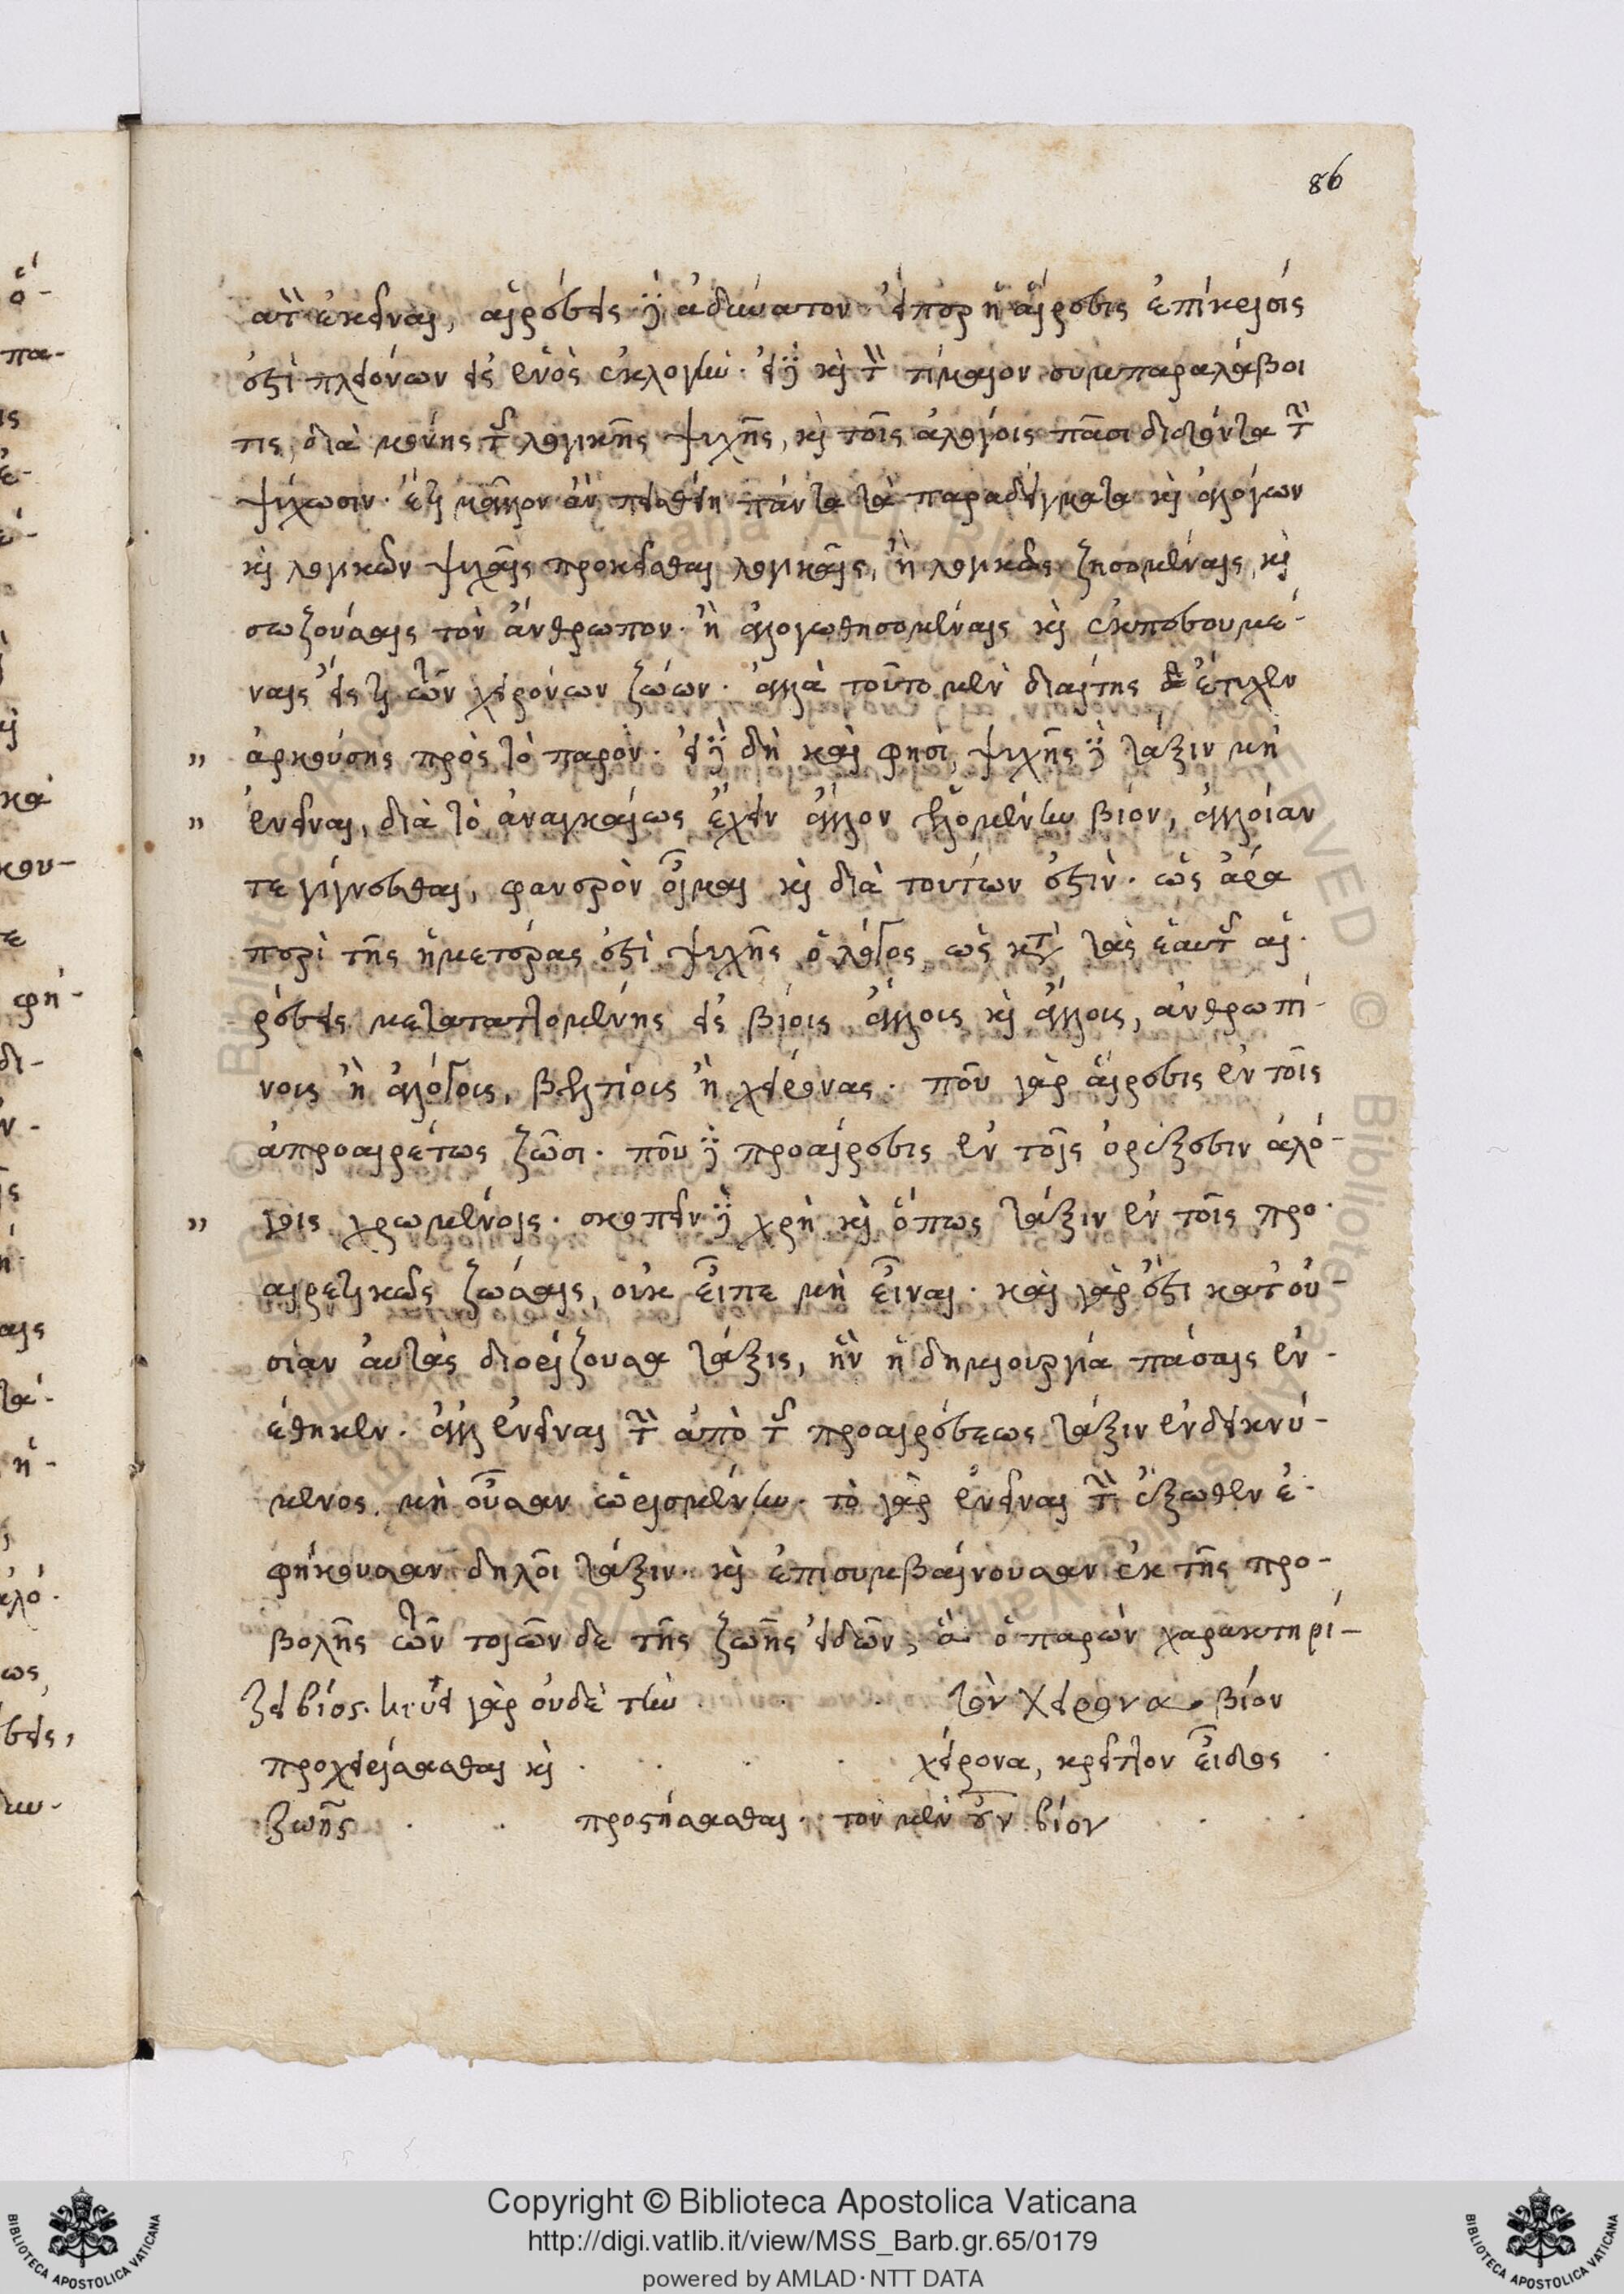 86
αὐτὴν ἐκεῖναι, αἱρέσεις δὲ ἀδύνατον εἴπερ ἡ αἵρεσις ἐπίκρισίς
ἐστι πλειόνων εἰς ἑνὸς ἐκλογήν. εἰ δὲ καὶ τὴν πίμαιον συμπαραλάβοι
τις, διὰ μόνης τῆς λογικῆς ψυχῆς, καὶ τοῖς ἀλόγοις πᾶσι διδόντα τὴν
ψύχωσιν. ἔτι μᾶλλον ἂν πεισθείη πάντα τὰ παραδείγματα καὶ ἀλόγων
καὶ λογικῶν ψυχαῖς προκεῖσθαι λογικαῖς, ἢ λογικῶς ζησομέναις, καὶ
σωζούσαις τὸν ἄνθρωπον. ἢ ἀλογωθησομέναις καὶ ἐκπεσουμέ-
ναις εἴς τι τῶν χειρόνων ζώων. ἀλλὰ τοῦτο μὲν διαίτης ἔτυχεν
" ἀρκούσης πρὸς τὸ παρόν. εἰ δὲ δὴ καί φησι, ψυχῆς δὲ τάξιν μὴ
" ἐνεῖναι, διὰ τὸ ἀναγκαίως ἔχειν ἄλλον ἑλομένην βίον, ἀλλοίαν
τε γίγνεσθαι, φανερὸν οἶμαι καὶ διὰ τούτων ἐστίν. ὡς ἄρα
περὶ τῆς ἡμετέρας ἐστὶ ψυχῆς ὁ λόγος, ὡς κατὰ τὰς ἑαυτῆς αἱ-
ρέσεις μεταταττομένης εἰς βίοις ἄλλοις καὶ ἄλλοις, ἀνθρωπί-
νοις ἢ ἀλόγοις, βελτίοις ἢ χείρονας. ποῦ γὰρ αἵρεσις ἐν τοῖς
ἀπροαιρέτως ζῶσι. ποῦ δὲ προαίρεσις ἐν τοῖς ὀρέξεσιν ἀλό-
" γοις χρωμένοις. σκοπεῖν δὲ χρὴ καὶ ὅπως τάξιν ἐν τοῖς προ-
αιρετικῶς ζώσαις, οὐκ εἶπε μὴ εἶναι. καὶ γὰρ ἔστι κατ' οὐ-
σίαν αὐτὰς διορίζουσα τάξις, ἣν ἡ δημιουργία πάσαις ἐν-
έθηκεν. ἀλλ' ἐνεῖναι τὴν ἀπὸ τῆς προαιρέσεως τάξιν ἐνδεικνύ-
μενος, μὴ οὖσαν ὡρισμένην. τὸ γὰρ ἐνεῖναι τὴν ἔξωθεν ἐ-
φήκουσαν δηλοῖ τάξιν. καὶ ἐπισυμβαίνουσαν ἐκ τῆς προ-
βολῆς τῶν τοιῶνδε τῆς ζωῆς εἰδῶν, ἃ ὁ παρὼν χαρακτηρί-
ζει βίος. γὰρ οὐδὲ τὴν . . . τὸν χείρονα βίον
προχειρίσασθαι καὶ . . . . χείρονα, κρεῖττον εἶδος .
ζωῆς . . προστήσασθαι. τὸν μὲν οὖν βίον . .
Copyright © Biblioteca Apostolica Vaticana
http://digi.vatlib.it/view/MSS_Barb.gr.65/0179
powered by AMLAD·NTT DATA